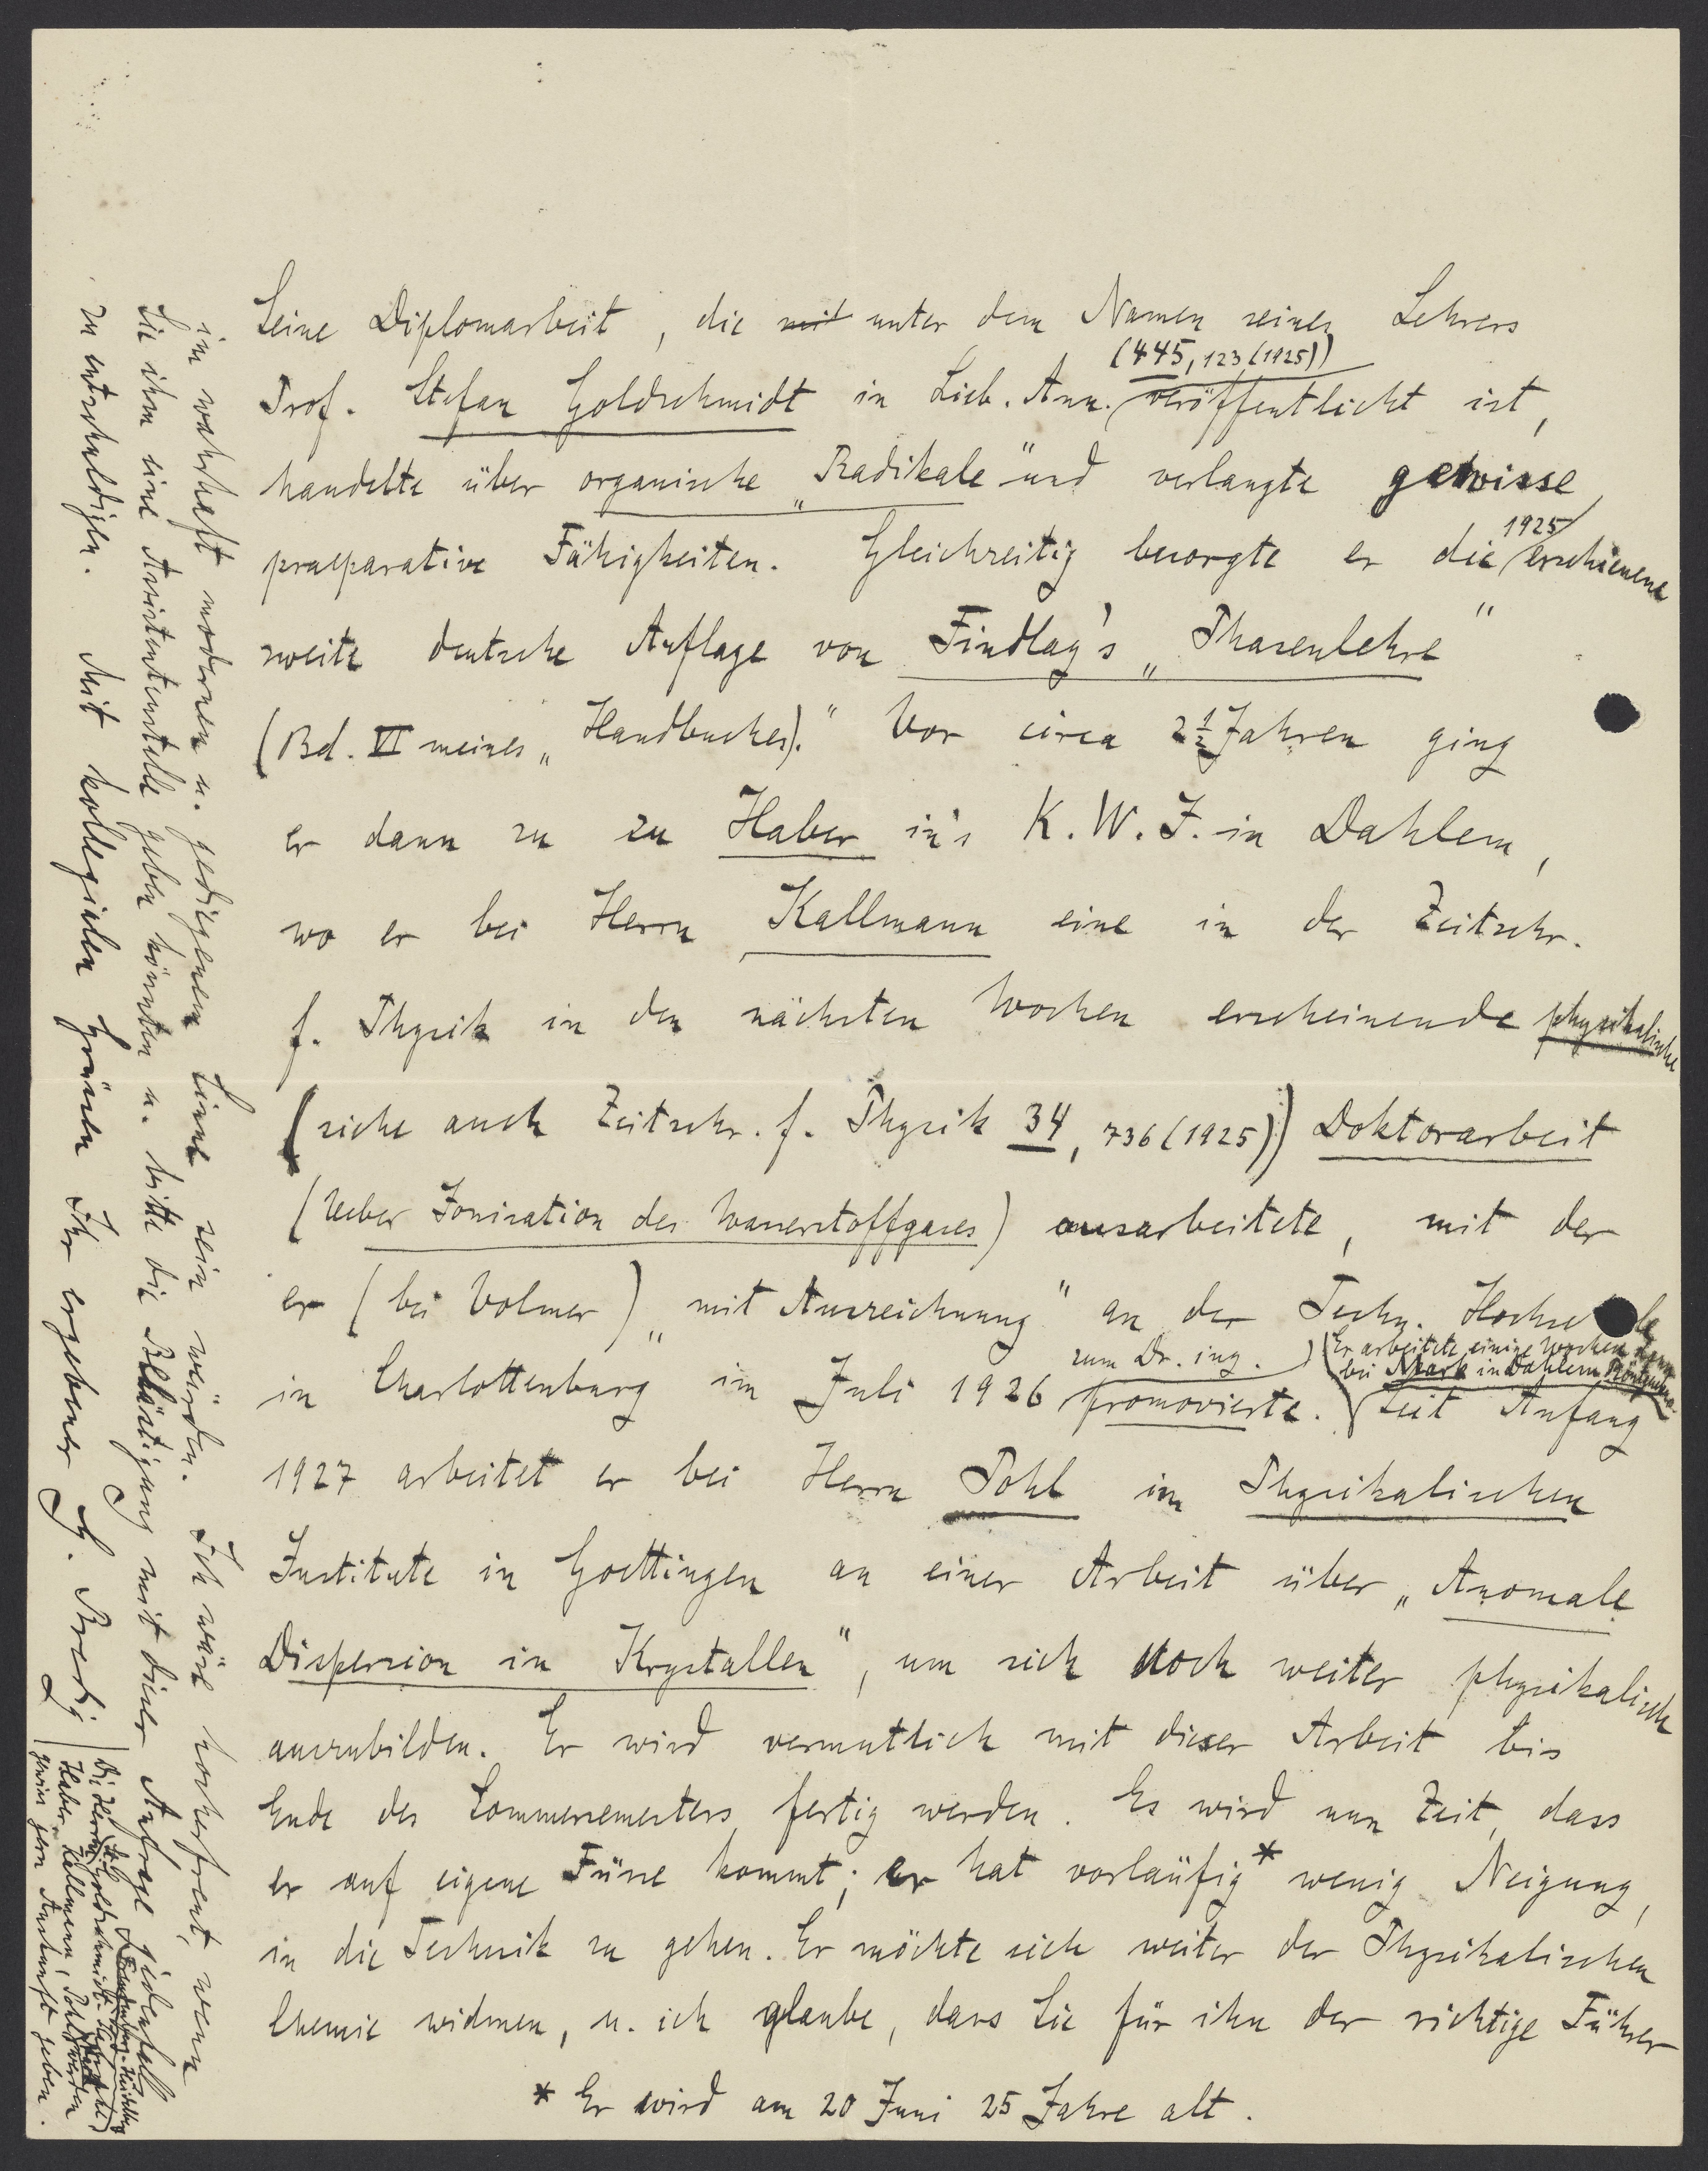 Seine Diplomarbeit, die mit unter dem Namen seines Lehrers
(445, 123 (1925))
Prof. Stefan Goldschmidt in Lieb. Ann. veröffentlicht ist,
handelte über organische „Radikale" und verlangte gewisse
praeparative Fähigkeiten. Gleichzeitig besorgte er die 1925 erschienene
zweite deutsche Auflage von Findlay's „Phasenlehre"
(Bd. VI meines „Handbuches)." Vor circa 2½ Jahren ging
er dann zu zu Haber in's K. W. I. in Dahlem,
wo er bei Herrn Kallmann eine in der Zeitschr.
f. Physik in den nächsten Wochen erscheinende physikalische
(siehe auch Zeitschr. f. Physik 34, 736 (1925)) Doktorarbeit
(Ueber Ionisation des Wasserstoffgases) ausarbeitete, mit der
er (bei Volmer) „mit Auszeichnung" an der Techn. Hochschule
zum Dr. ing. (Er arbeitete einige Wochen dann
bei Mark in Dahlem
in Charlottenburg im Juli 1926 promovierte. Seit Anfang
1927 arbeitet er bei Herrn Pohl im Physikalischen
Institute in Goettingen an einer Arbeit über „Anomale
Dispersion in Krystallen", um sich noch weiter physikalisch
auszubilden. Er wird vermutlich mit dieser Arbeit bis
Ende des Sommersemesters fertig werden. Es wird nun Zeit, dass
er auf eigene Füsse kommt; er hat vorläufig* wenig Neigung,
in die Technik zu gehen. Er möchte sich weiter der Physikalischen
Chemie widmen, u. ich glaube, dass Sie für ihn der richtige Führer
* Er wird am 20 Juni 25 Jahre alt.
im wahrhaft modernen u. gediegenen Sinne sein würden. Ich wäre hocherfreut, wenn
Sie ihm eine Assistentenstelle geben könnten u. bitte die Belästigung mit dieser Anfrage jedenfalls
zu entschuldigen. Mit kollegialen Grüssen Ihr ergebener G. Bredig
Die Herren St. Goldschmidt
Haber, Kallmann, Pohl werden
gewiss gern Auskunft geben.